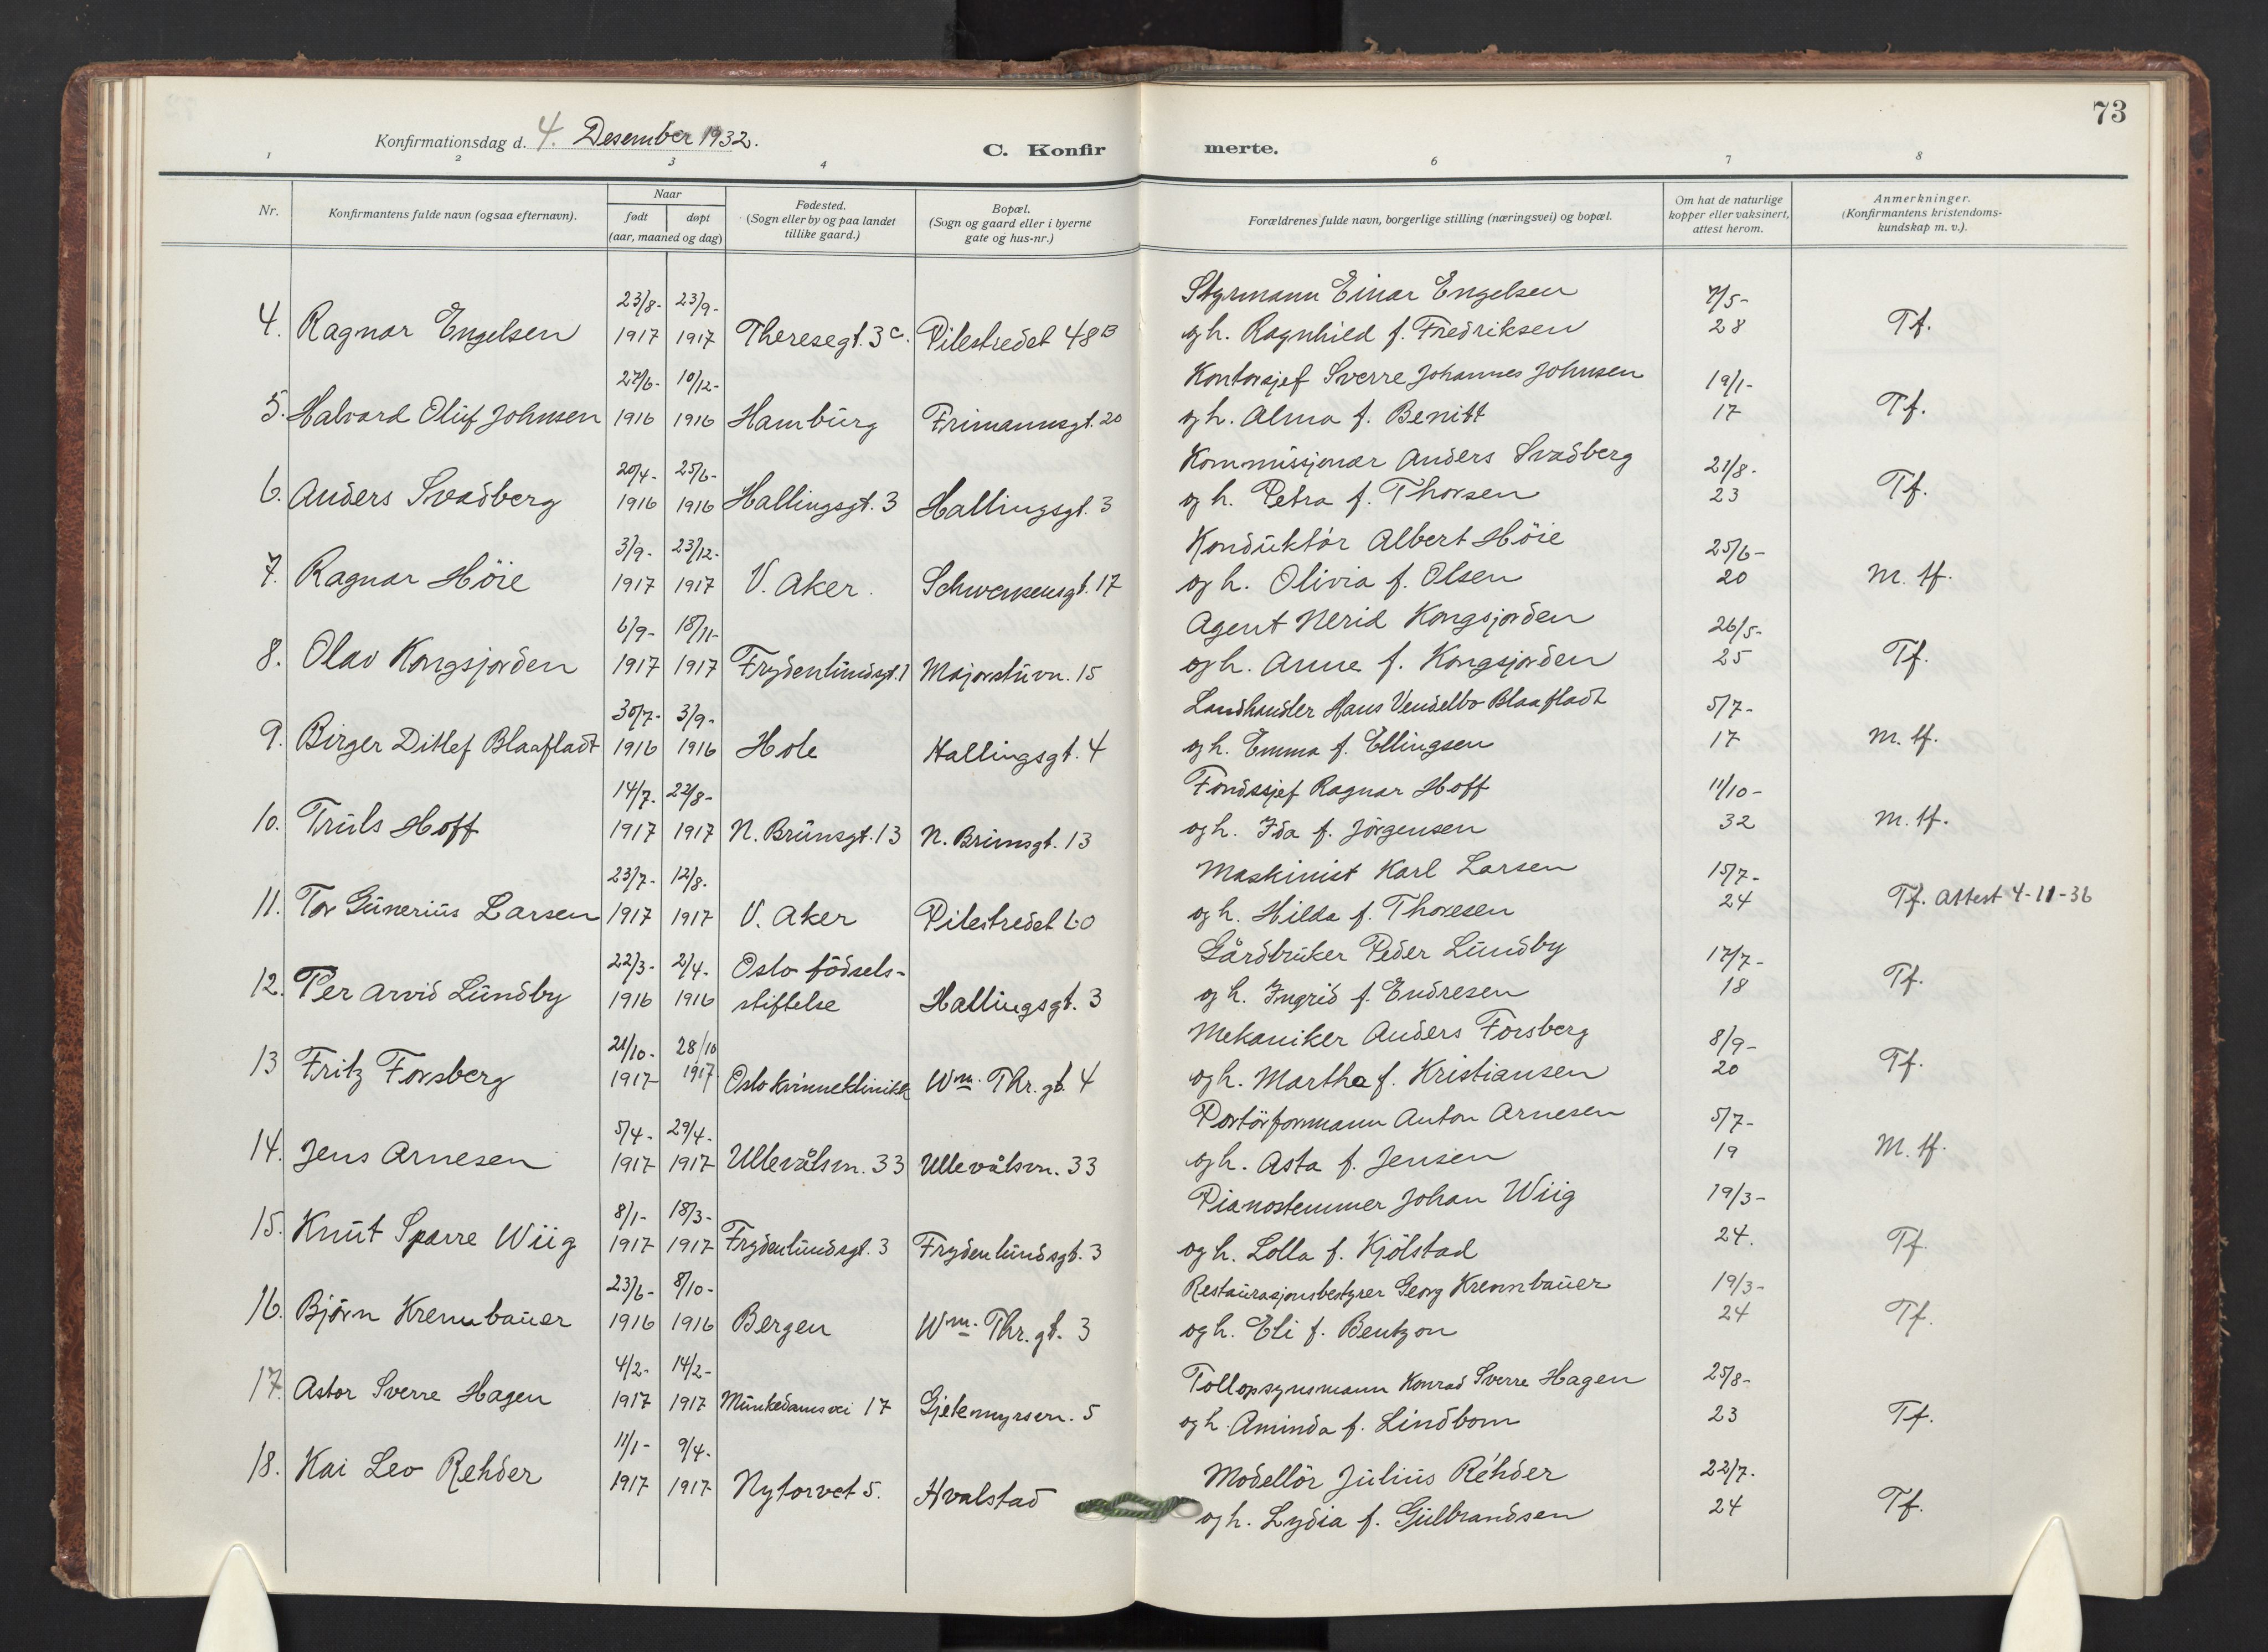 73
Konfirmationsdag d. 4. Desember 1932.
C. Konfirmerte.
1 2 3 4 6 7 8
Nr.
Konfirmantens fulde navn (ogsaa efternavn).
Naar
født døpt
(aar, maaned og dag)
Fødested.
(Sogn eller by og paa landet
tillike gaard.)
Bopæl.
(Sogn og gaard eller i byerne
gate og hus-nr.)
Forældrenes fulde navn, borgerlige stilling (næringsvei) og bopæl.
Om hat de naturlige
kopper eller vaksinert,
attest herom.
Anmerkninger.
(Konfirmantens kristendoms-
kundskap m. v.).
23/8- 23/9- Styrmann Einar Engelsen 7/5-
4. Ragnar Engelsen 1917 1917 Theresegt. 3 c. Pilestredet 48 B og h. Ragnhild f. Fredriksen 28 Tf.
27/6- 10/12- Kontorsjef Sverre Johannes Johnsen 19/1-
5. Halvard Oluf Johnsen 1916 1916 Hamburg Frimannsgt. 20 og h. Alma f. Benitt 17 Tf.
20/4- 25/6- Kommissjonær Anders Svadberg 21/8.
6. Anders Svadberg 1916 1916 Hallingsgt. 3 Hallingsgt. 3 og h. Petra f. Thorsen 23 Tf.
3/9- 23/12- Konduktör Albert Höie 25/6-
7. Ragnar Höie 1917 1917 V. Aker. Schwensensgt. 17 og h. Olivia f. Olsen 20 M. tf.
6/9- 18/11- Agent Nerid Kongsjorden 26/5-
8. Olav Kongsjorden 1917 1917 Frydenlundsgt. 1 Majorstuvn. 15 og h. Anne f. Kongsjorden 25 Tf.
30/7- 3/9- Landhandler Hans Vendelbo Blaafladt 5/7-
9. Birger Ditlef Blaafladt 1916 1916 Hole Hallingsgt. 4 og h. Emma f. Ellingsen 17 M. tf.
14/7. 22/8- Fondssjef Ragnar Hoff 11/10-
10. Truls Hoff 1917 1917 N. Brunsgt. 13 N. Brunsgt. 13 og h. Ida f. Jörgensen 32 M. tf.
23/7- 12/8. Maskinist Karl Larsen 15/7-
11. Tor Gunerius Larsen 1917 1917 V. Aker Pilestredet 60 og h. Hilda f. Thoresen 24 Tf. Attest 4-11-36
22/3- 2/4. Oslo födsels- Gårdbruker Peder Lundby 17/7-
12. Per Arvid Lundby 1916 1916 stiftelse Hallingsgt. 3 og h. Ingrid f. Endresen 18 Tf.
21/10- 28/10 Mekaniker Anders Forsberg 8/9-
13 Fritz Forsberg 1917- 1917 Oslo kvinneklinikk Wm. Thr. gt. 4 og h. Martha f. Kristiansen 20 Tf.
5/4- 29/4- Portörformann Anton Arnesen 5/7-
14. Jens Arnesen 1917 1917 Ullevålsvn. 33 Ullevålsvn. 33 og h. Asta f. Jensen 19 M. tf.
8/1- 18/3- Pianostemmer Johan Wiig 19/3-
15. Knut Sparre Wiig 1917 1917 Frydenlundsgt. 3 Frydenlundsgt. 3 og h. Lolla f. Kjölstad 24. Tf.
23/6- 8/10- Restaurasjonsbestyrer Georg Krennbauer 19/3-
16. Björn Krennbauer 1916 1916 Bergen Wm. Thr. gt. 3 og h. Eli f. Bentzon 24 Tf.
4/2- 14/2- Tollopsynsmann Konrad Sverre Hagen 25/8-
17. Astor Sverre Hagen 1917 1917 Munkedamsvei 17 Gjetemyrsvn. 5 og h. Aminda f. Lindbom 23 Tf.
11/1- 9/4- Modellör Julius Rehder 22/7.
18. Kai Leo Rehder 1917 1917 Nytorvet 5. Hvalstad og h. Lydia f. Gulbrandsen 24 Tf.